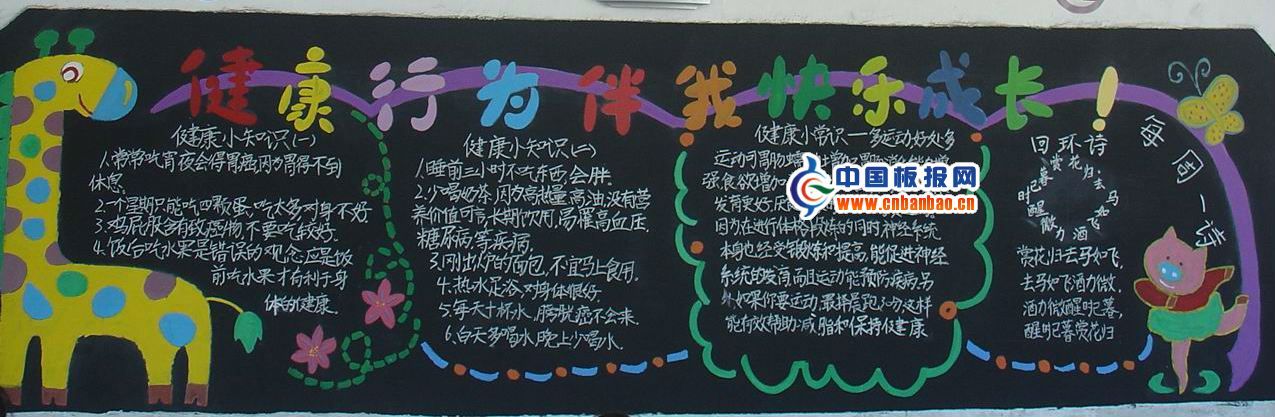 健康行为伴我快乐成长!
健康小知识(一)
1.常常吃宵夜会得胃癌,因为胃得不到
休息.
2.一个星期只能吃四颗蛋,吃太多对身不好
3.鸡屁股多有致癌物,不要吃较好.
4.饭后吃水果是错误的观念,应是饭
前吃水果才有利于身
体的健康.
健康小知识(二)
1.睡前三小时不吃东西会胖.
2.少喝奶茶,因为高热量,高油,没有营
养价值可言,长期饮用,易罹高血压,
糖尿病等疾病.
3.刚出炉的面包,不宜马上食用.
4.热水足浴对身体很好.
5.每天十杯水,膀胱癌不会来.
6.白天多喝水,晚上少喝水.
健康小常识——多运动好处多
运动可胃肠蠕
强,食欲增加
发育更好
因为在进行体格锻炼的同时,神经系统
本身也经受锻炼和提高,能促进神经
系统的发育,而且运动能预防疾病,另
外,如果你要运动,最择晨跑,因为这样
能有效帮助减脂和保持健康
中国板报网
www.cnbanbao.cn
每周一诗
回环诗
赏花归去马如飞酒力微醒时已暮
赏花归去马如飞,
去马如飞酒力微,
酒力微醒时已暮,
醒时已暮赏花归